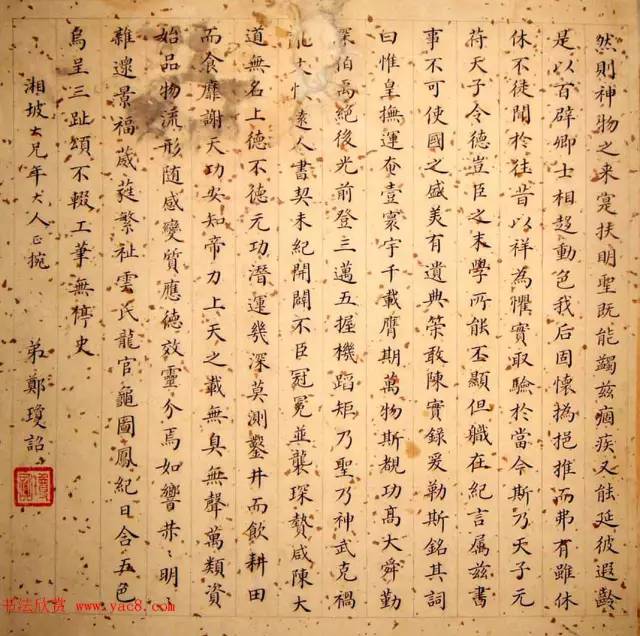 然則神物之來寔扶明聖既能蠲茲痼疾又能延彼遐齡
是以百辟卿士相趨動色我后固懷撝挹推而弗有雖休
休不徒聞於往昔以祥為懼實取驗於當今斯乃天子元
苻天子令德豈臣之末學所能丕顯但職在紀言属茲書
事不可使國之盛美有遺典策敢陳實錄爰勒斯銘其詞
曰惟皇撫運奄壹寰宇千載膺期萬物斯覩功髙大舜勤
深伯禹絕後光前登三邁五握機蹈矩乃聖乃神武克禍
遠人書契未紀開闢不臣冠冕並襲琛贄咸陳大
道無名上德不德元功潛運幾深莫測鑿井而飲耕田
而食靡謝天功安知帝力上天之載無臭無聲萬類資
始品物流形随感變質應德效靈介焉如響恭〻明〻
雜遝景福葳蕤繁祉雲氏龍官龜圖鳳紀日含五色
烏呈三趾頌不輟工筆無停史
湘坡大兄年大人正捥
弟鄭瓊詔
书法欣赏 www.yac8.com